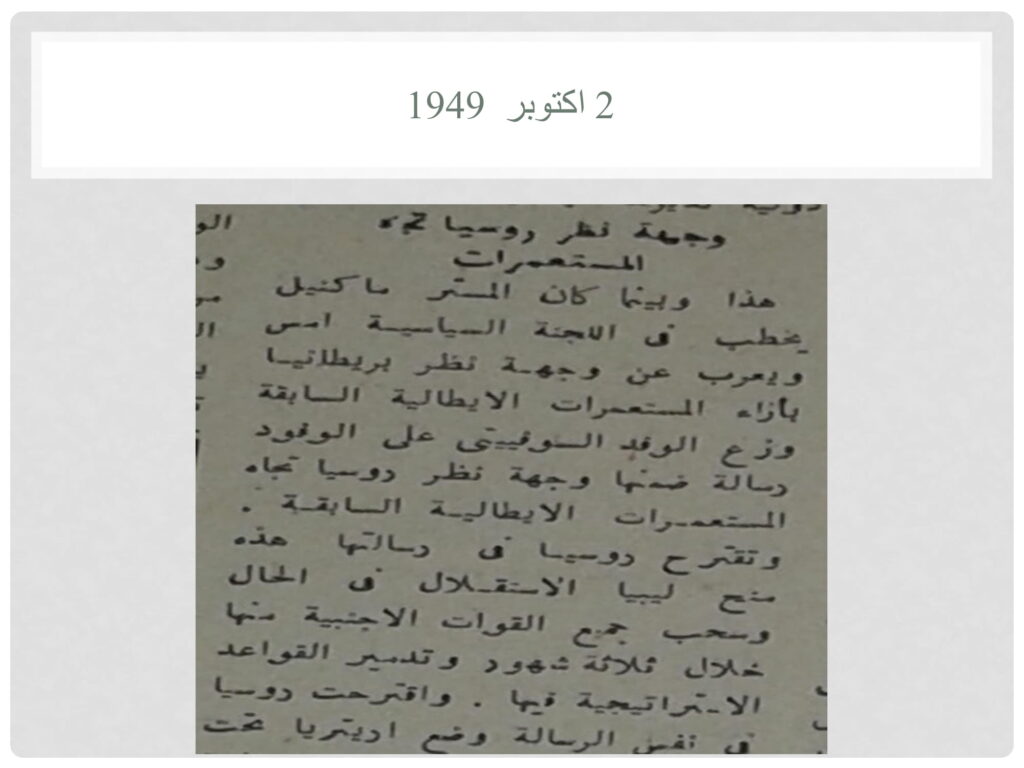 2 اكتوبر 1949
وجهة نظر روسيا تجاه
المستعمرات
هذا وبينما كان المستر ماكنيل
يخطب فى اللجنة السياسية امس
ويعرب عن وجهة نظر بريطانيا
بأزاء المستعمرات الايطالية السابقة
وزع الوفد السوفييتى على الوفود
رسالة ضمنها وجهة نظر روسيا تجاه
المستعمرات الايطالية السابقة .
وتقترح روسيا فى رسالتها هذه
منح ليبيا الاستقلال فى الحال
وسحب جميع القوات الاجنبية منها
خلال ثلاثة شهور وتدمير القواعد
الاستراتيجية فيها . واقترحت روسيا
فى نفس الرسالة وضع اريتريا تحت